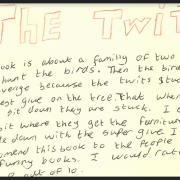 THE TWIT
ook is about a family of two
hunt the birds. Then the bird
venge because the twits stu
est glue on the tree. That when
sit down they are stuck. I
bit where they get the furnitur
le down with the super glue I
omend this book to the people
funny books. I would rat
out of 10.